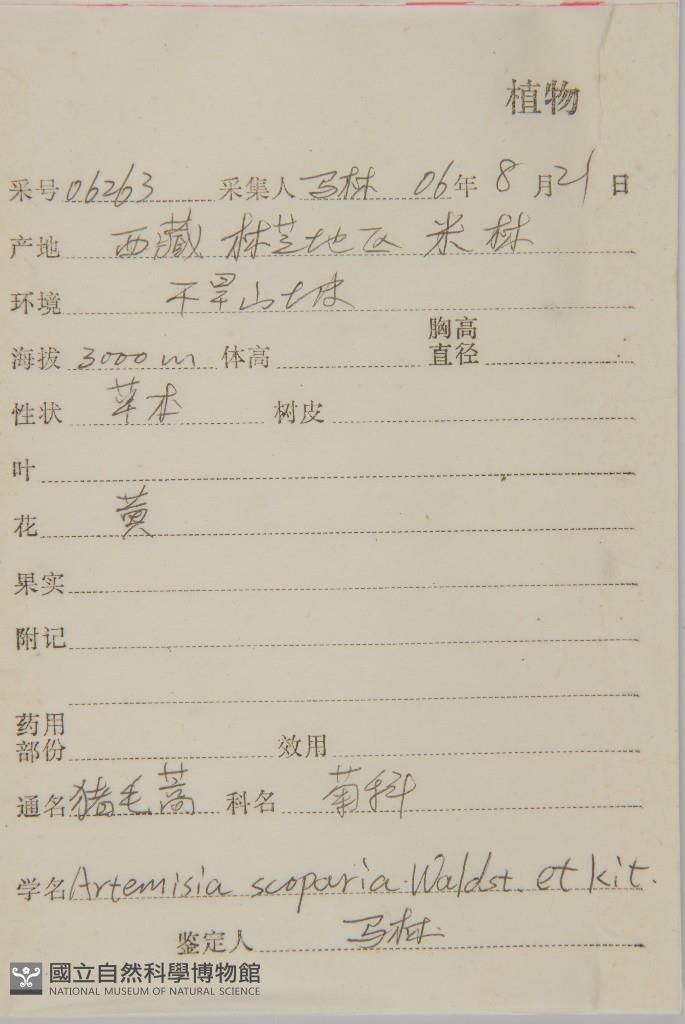 植物
采号 06263 采集人 马林 06年 8 月 21 日
产地 西藏 林芝地区 米林
环境 干旱山坡
海拔 3000 m 体高 胸高直径
性状 草本 树皮
叶
花 黄
果实
附记
药用部份 效用
通名 猪毛蒿 科名 菊科
学名 Artemisia scoparia Waldst. et kit.
鉴定人 马林
國立自然科學博物館
NATIONAL MUSEUM OF NATURAL SCIENCE